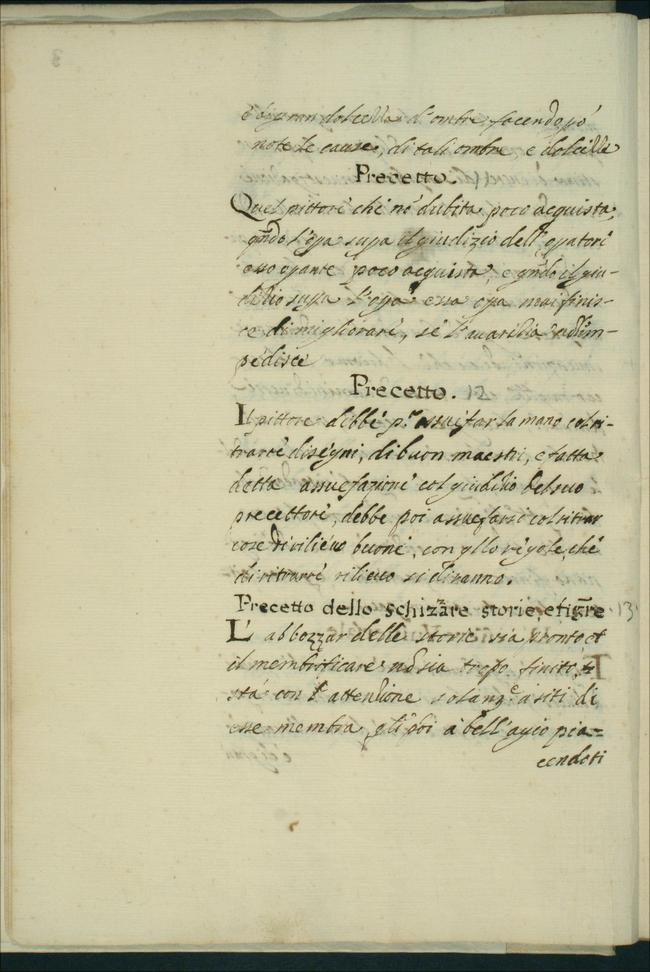 e di gran dolcezza d'ombre facendo però
note le cause, di tali ombre, e dolcezze
Precetto.
Quel pittore che nõ dubita poco acquista,
qñdo l'opa supa il giudizio dell'opatore
esso opante poco acquista, e qñdo il giu-
dizio supa l'opa essa opa mai finis-
ce di migliorare, se l'avarizia nõ l'im-
pedisce
Precetto. 12
Il pittore debbe pª assuefar la mano col ri-
trarre disegni, di buon maestri, e fatta
detta assuefazione col giudizio del suo
precettore, debbe poi assuefarsi col ritrar
cose di rilievo buone, con qllo regole, che
di ritrarre rilievo si diranno.
Precetto dello schizzare storie, e figure 13
L'abbozzar delle storie sia pronto et
il membrificare nõ sia tropo finito, sta
sta con l'attenzione solamte a siti di
esse membra, e li poi a bell'agio pia=
cendoti
3